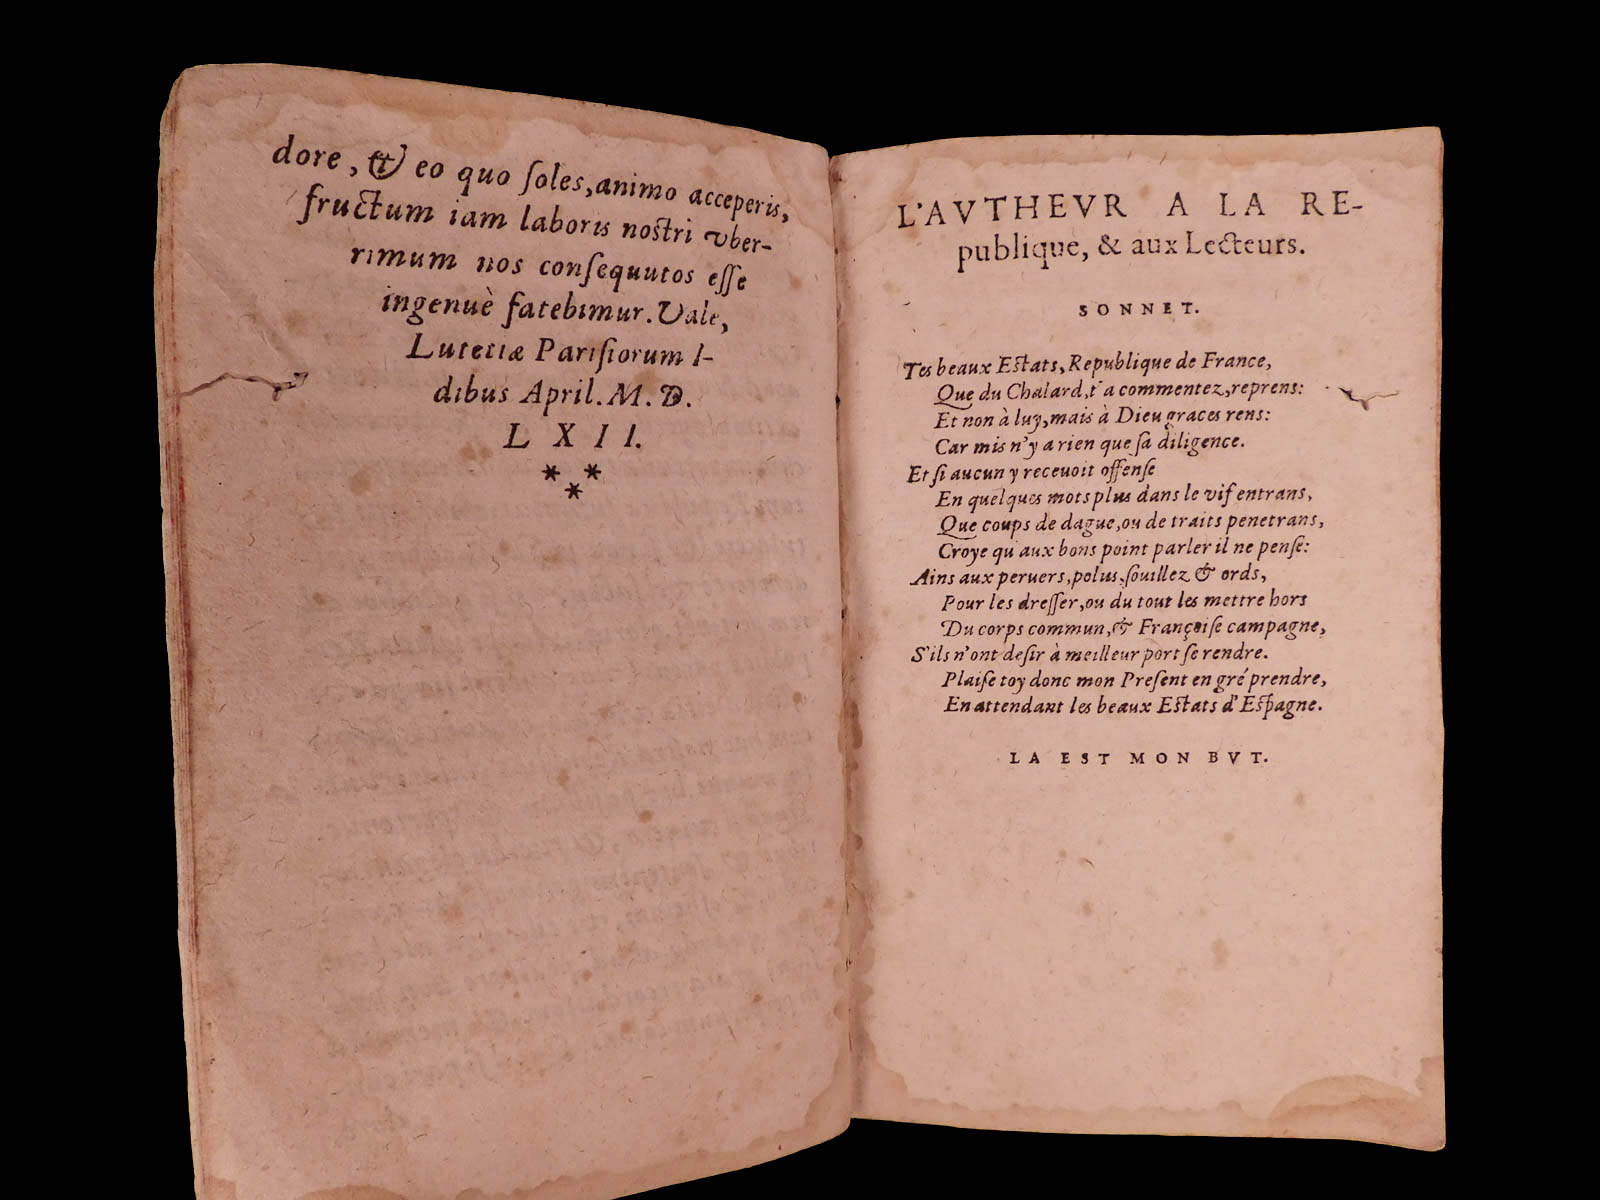 dore, & eo quo ſoles, animo acceperis,
fructum iam laboris nostri vber-
rimum nos conſequutos eſſe
ingenuè fatebimur. Vale,
Lutetiæ Pariſiorum I-
dibus April. M. D.
L X I I.
* * *
L'AVTHEVR A LA RE-
publique, & aux Lecteurs.
SONNET.
Tes beaux Estats, Republique de France,
Que du Chalard, t'a commentez, reprens:
Et non à luy, mais à Dieu graces rens:
Car mis n'y a rien que ſa diligence.
Et ſi aucun y receuoit offenſe
En quelques mots plus dans le vif entrans,
Que coups de dague, ou de traits penetrans,
Croye qu'aux bons point parler il ne penſe:
Ains aux peruers, polus, ſouillez & ords,
Pour les dreſſer, ou du tout les mettre hors
Du corps commun, & Françoiſe campagne,
S'ils n'ont deſir à meilleur port ſe rendre.
Plaiſe toy donc mon Preſent en gré prendre,
En attendant les beaux Estats d'Eſpagne.
LA EST MON BVT.